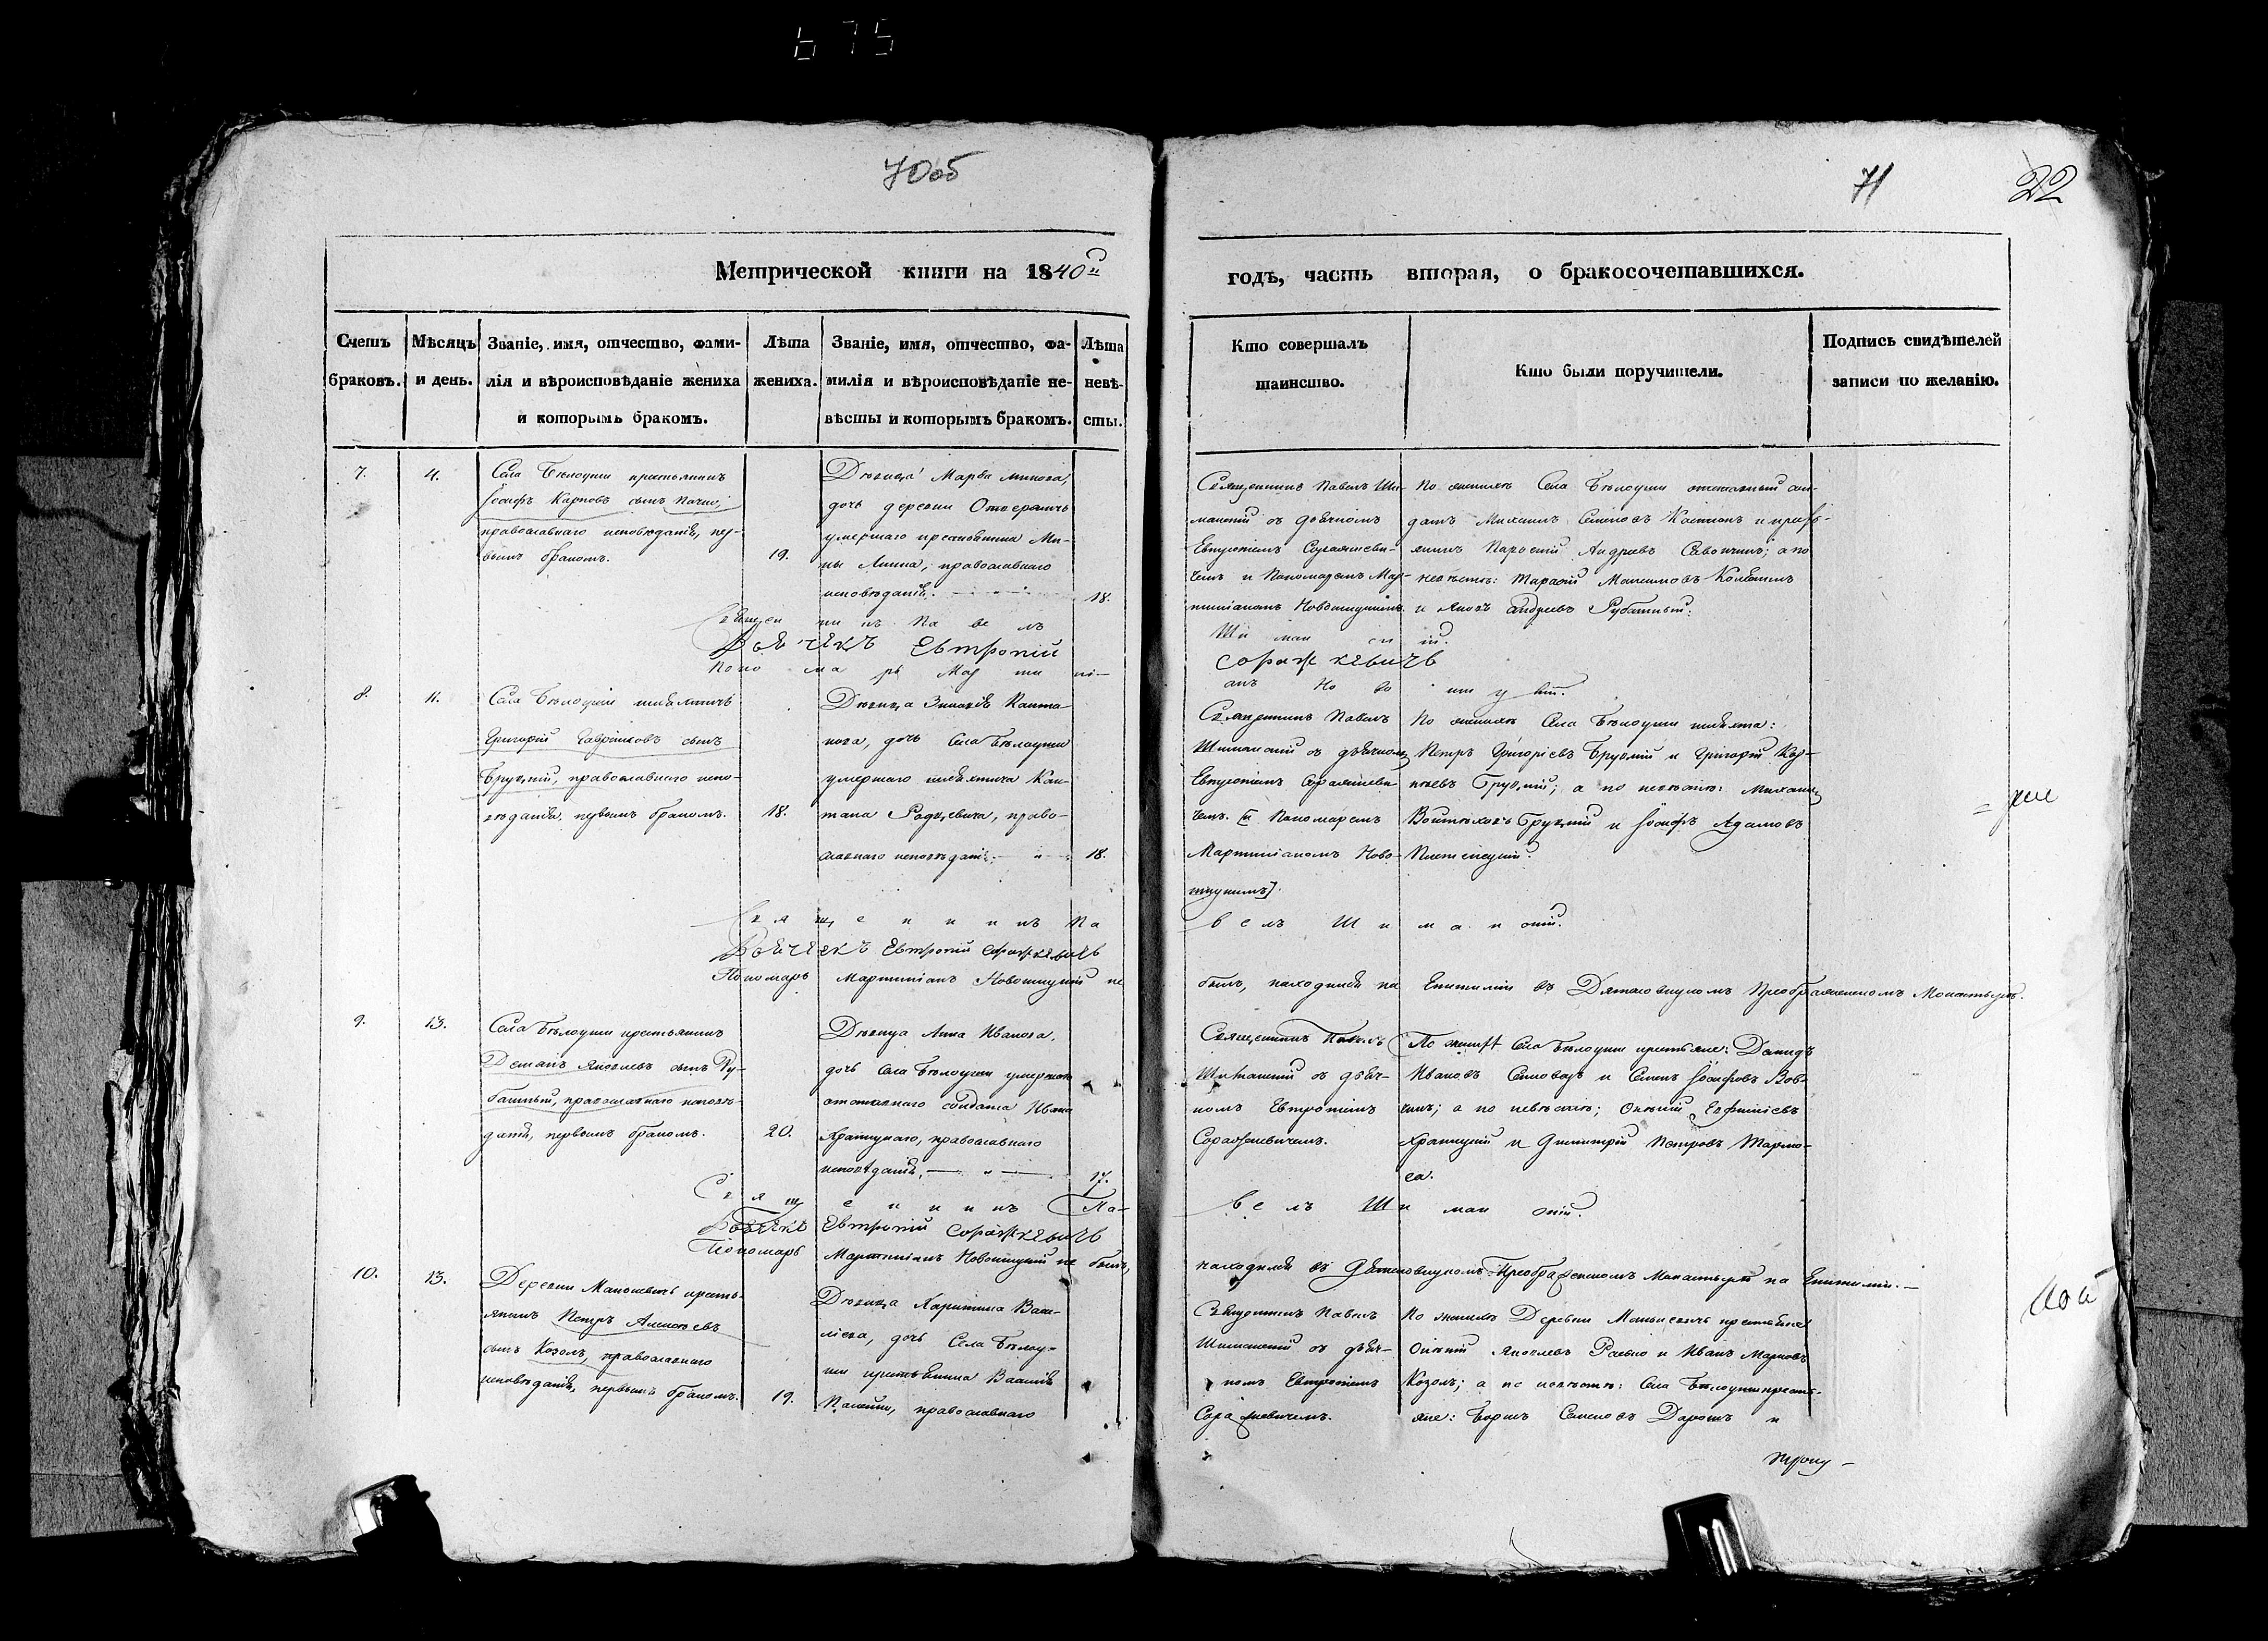 675
70об
71
22
Метрической книги на 1840й
годъ, часть вторая, о бракосочетавшихся.
Счетъ браковъ.
Мѣсяцъ и день.
Званіе, имя, отчество, фами-
лія и вѣроисповѣданіе жениха
и которымъ бракомъ.
Лѣта
жениха.
Званіе, имя, отчество, фа-
милія и вѣроисповѣданіе не-
вѣсты и которымъ бракомъ.
Лѣта
невѣ-
сты.
Кто совершалъ
таинство.
Кто были поручители.
Подпись свидѣтелей
записи по желанію.
7.
4.
Села Бѣлоуши крестьянинъ
Іосифъ Карповъ сынъ
православнаго исповѣданія, пер-
вымъ бракомъ.
19.
Дѣвица Марѳа Минова,
дочь деревни Отвержичъ
умершаго крестьянина Ми-
ны Линна, православнаго
исповѣданія.
18.
Священникъ Павелъ Ши-
манскій съ дьячкомъ
Евтропіемъ Соражкеви-
чемъ и Пономаремъ Мар-
тиніаномъ Новошицкимъ.
По женихѣ Села Бѣлоуши отставный сол-
датъ Михаилъ Семеновъ и кресть-
янинъ Андреевъ а по
невѣстѣ: Тарасій Максимовъ
и Яковъ Андреевъ Рубашный.
Священникъ Павелъ Шиманскій.
Дьячекъ Евтропій Соражкевичъ
Пономарь Мартиніанъ Новошицкій.
8.
11.
Села Бѣлоуши шляхтичъ
Григорій Гавриловъ сынъ
Бруцкій, православнаго испо-
вѣданія, первымъ бракомъ.
18.
Дѣвица Зиновія Капита-
нова, дочь Села Бѣлоуши
умершаго шляхтича Капи-
тана Родзевича, право-
славнаго исповѣданія.
18.
Священникъ Павелъ
Шиманскій съ дьячкомъ
Евтропіемъ Соражкеви-
чемъ. [и Пономаремъ
Мартиніаномъ Ново-
шицкимъ].
По женихѣ Села Бѣлоуши шляхта:
Петръ Григоріевъ Бруцкій и Григорій Кор-
нѣевъ Бруцкій; а по невѣстѣ: Михаилъ
Войтѣховъ Бруцкій и Іосифъ Адамовъ
Священникъ Павелъ Шиманскій.
Дьячекъ Евтропій Соражкевичъ
Пономарь Мартиніанъ Новошицкій не былъ, находился на Епитиміи въ Дятловицкомъ Преображенскомъ Монастырѣ.
9.
13.
Села Бѣлоуши крестьянинъ
Деміанъ Яковлевъ сынъ Ру-
башный, православнаго исповѣ-
данія, первымъ бракомъ.
20.
Дѣвица Анна Иванова,
дочь Села Бѣлоуши умершаго
отставнаго солдата Ивана
Храпицкаго, православнаго
исповѣданія.
17.
Священникъ Павелъ
Шиманскій съ дьяч-
комъ Евтропіемъ
Соражкевичемъ.
По женихѣ Села Бѣлоуши крестьяне: Давидъ
Ивановъ и Семенъ Іосифовъ Вов-
чикъ; а по невѣстѣ: Онисій Евфиміевъ
Храпицкій и Димитрій Петровъ Шармо-
са.
Священникъ Павелъ Шиманскій.
Дьячекъ Евтропій Соражкевичъ
Пономарь Мартиніанъ Новошицкій не былъ, находился въ Дятловицкомъ Преображенскомъ Монастырѣ на Епитиміи.
10.
13.
Деревни Манкевичъ кресть-
янинъ Петръ Алексѣевъ
сынъ Козолъ, православнаго
исповѣданія, первымъ бракомъ.
19.
Дѣвица Харитина Васи-
ліева, дочь Села Бѣлоу-
ши крестьянина Василія
православнаго
Священникъ Павелъ
Шиманскій съ дьяч-
комъ Евтропіемъ
Соражкевичемъ.
По женихѣ Деревни Манкевичъ крестьяне
Онисій Яковлевъ и Иванъ Марковъ
Козолъ; а по невѣстѣ: Села Бѣлоуши кресть-
яне: Борисъ Семеновъ и